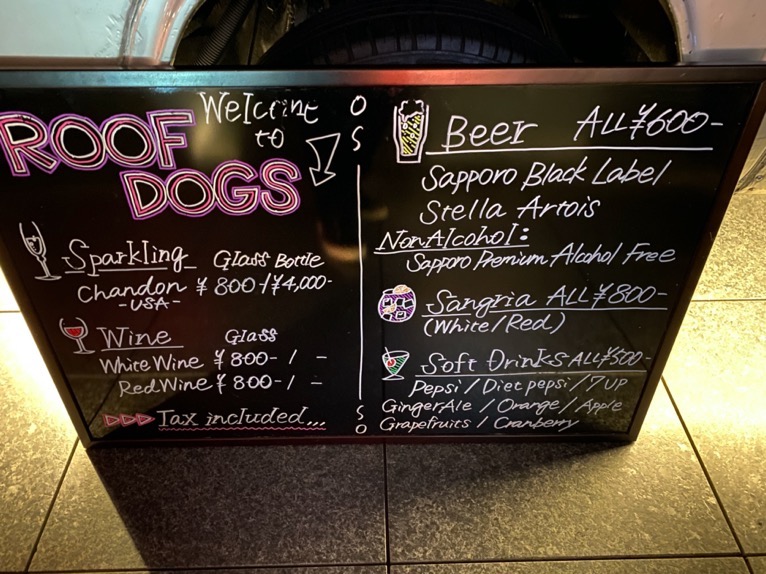 Welcome
to
ROOF
DOGS
Sparkling Glass Bottle
Chandon ¥800-/¥4,000-
-USA-
Wine Glass
White Wine ¥800-/ -
Red Wine ¥800-/ -
Tax included...
Beer ALL ¥600-
Sapporo Black Label
Stella Artois
NonAlcohol:
Sapporo Premium Alcohol Free
Sangria ALL ¥800-
(White/Red)
Soft Drinks ALL ¥500-
Pepsi / Diet pepsi / 7UP
GingerAle / Orange / Apple
Grapefruits / Cranberry